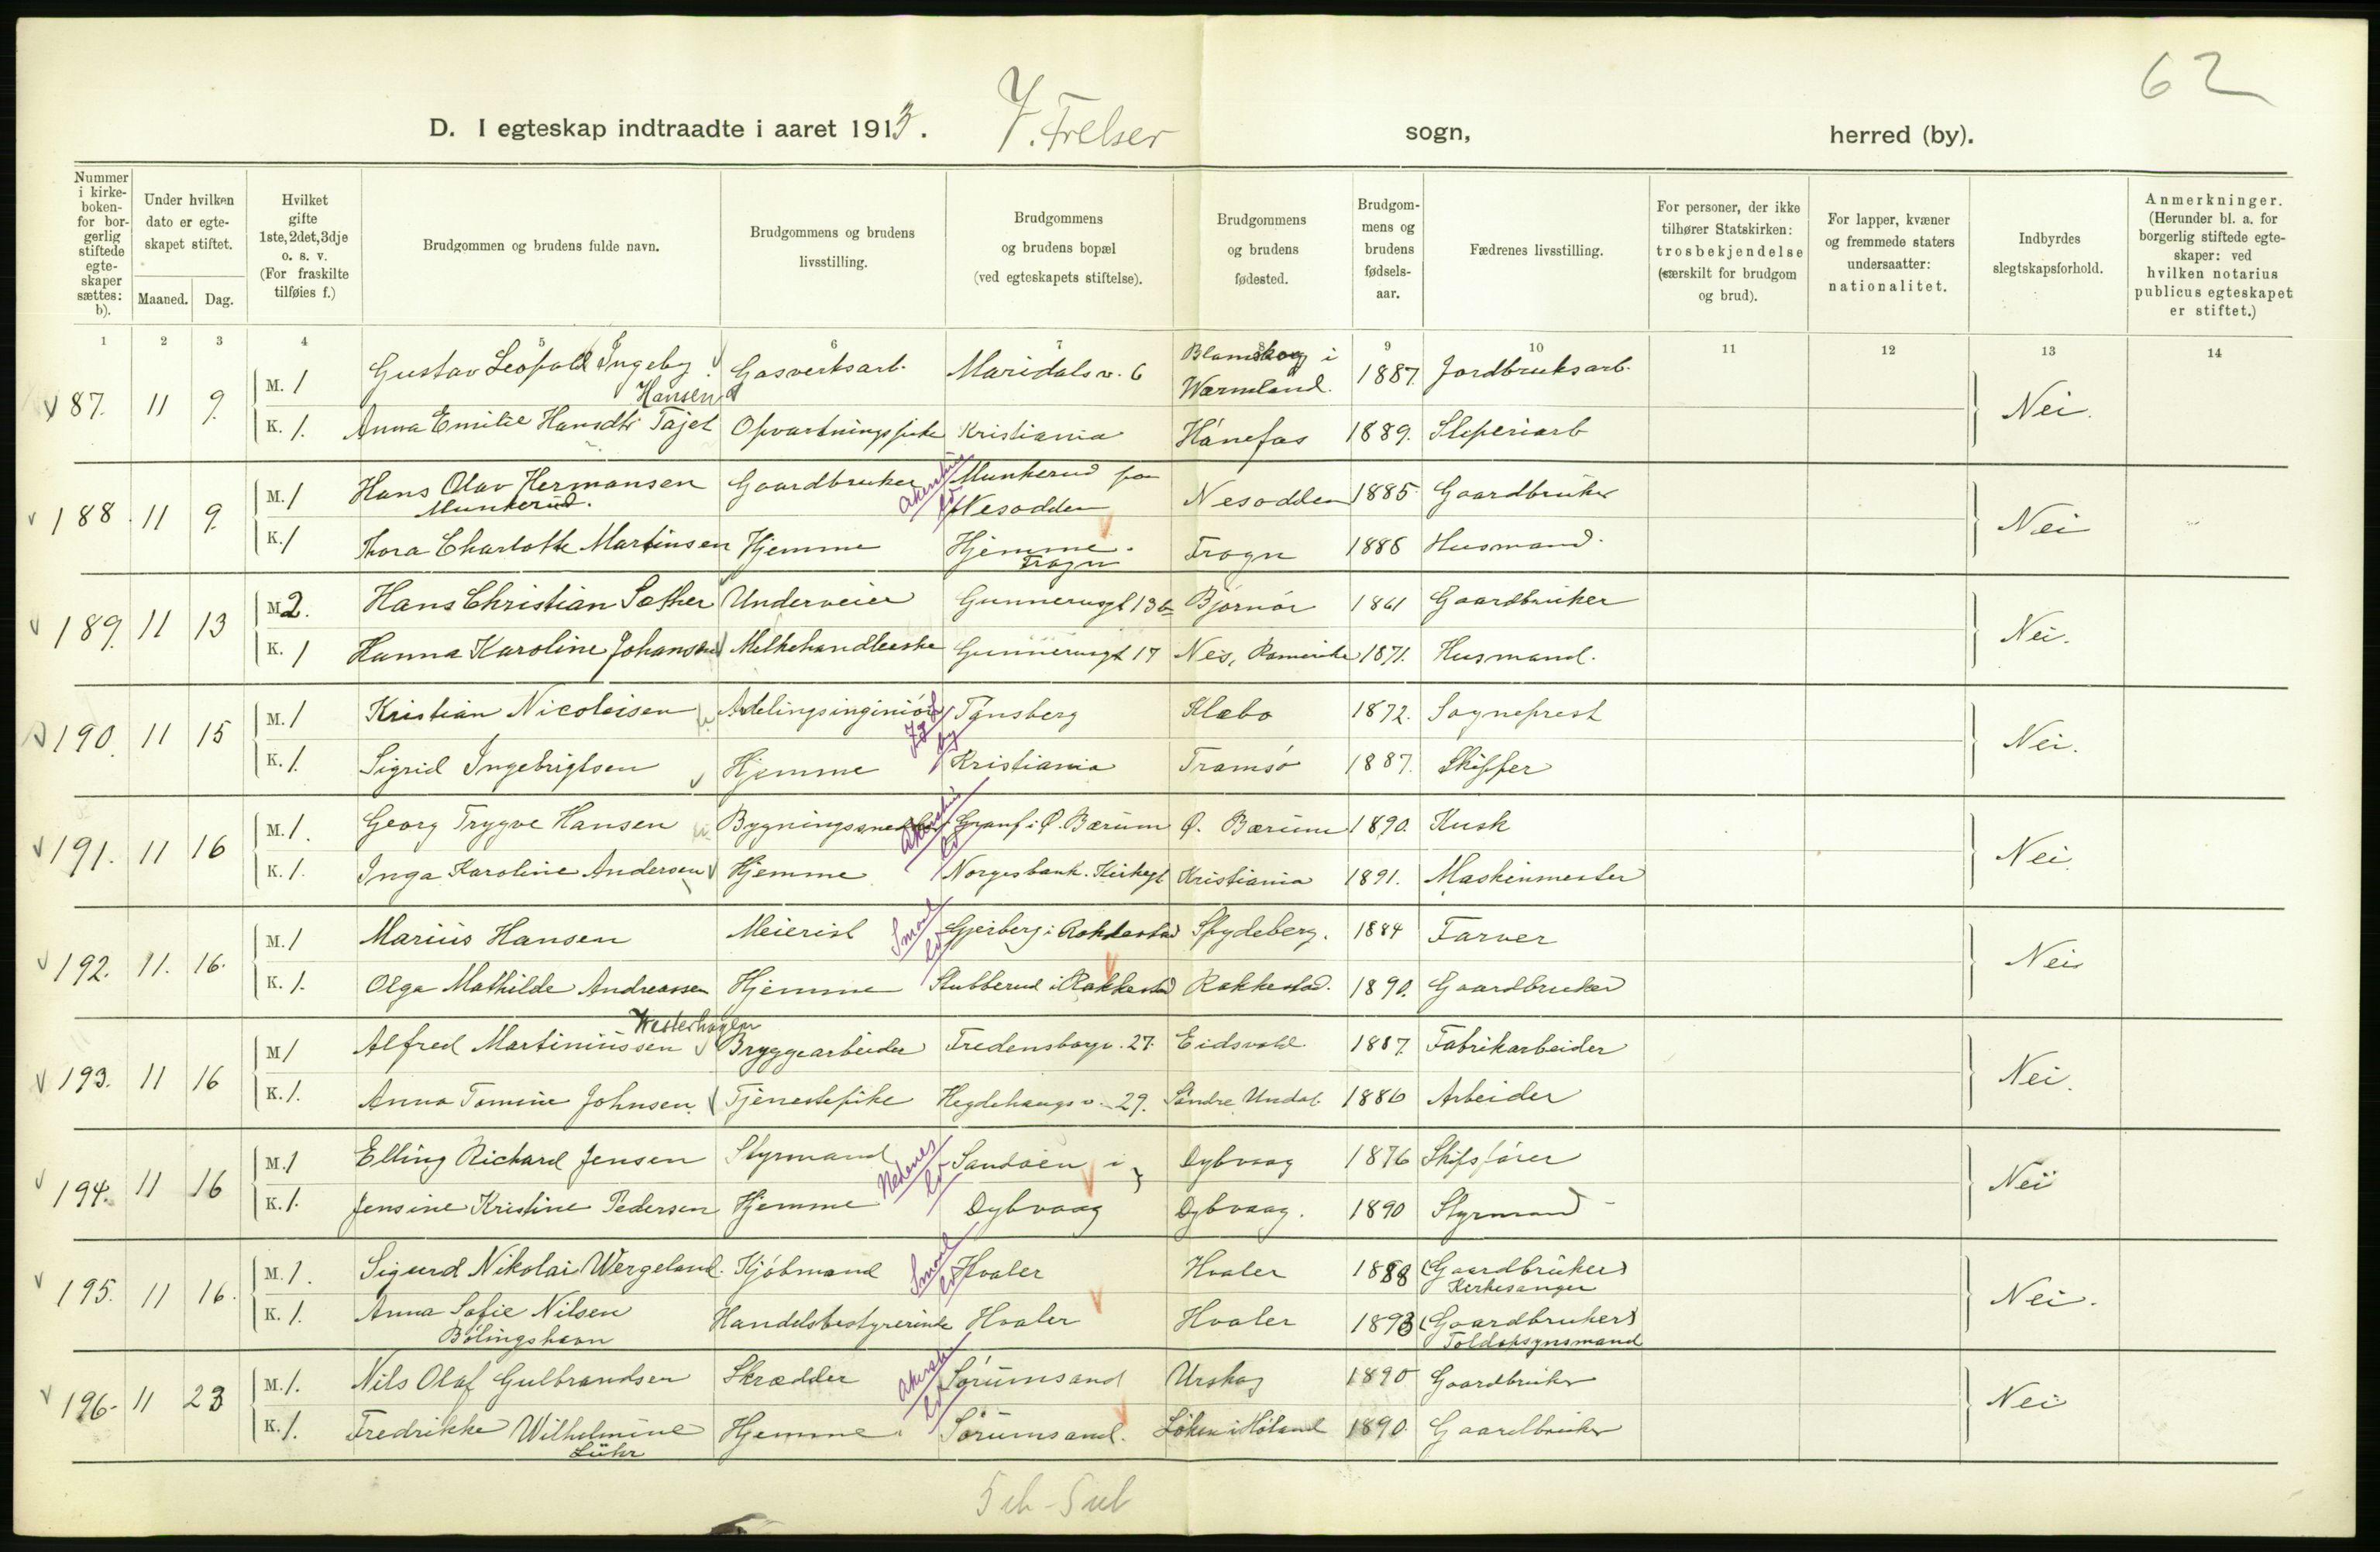 62
D. I egteskap indtraadte i aaret 1913. V. Frelser sogn, herred (by).
Nummer i kirke-boken- for bor-gerlig stiftede egte-skaper sættes: b).
Under hvilken dato er egte-skapet stiftet.
Maaned. Dag.
Hvilket gifte 1ste, 2det, 3dje o. s. v. (For fraskilte tilføies f.)
Brudgommen og brudens fulde navn.
Brudgommens og brudens livsstilling.
Brudgommens og brudens bopæl (ved egteskapets stiftelse).
Brudgommens og brudens fødested.
Brudgom-mens og brudens fødsels-aar.
Fædrenes livsstilling.
For personer, der ikke tilhører Statskirken: trosbekjendelse (særskilt for brudgom og brud).
For lapper, kvæner og fremmede staters undersaatter: nationalitet.
Indbyrdes slegtskapsforhold.
Anmerkninger. (Herunder bl. a. for borgerlig stiftede egte-skaper: ved hvilken notarius publicus egteskapet er stiftet.)
1 2 3 4 5 6 7 8 9 10 11 12 13 14
87. 11 9. M. 1 Gustav Leopold Ingeby Hansen Gasverksarb. Maridalsv. 6 Blomskog i Wærmland. 1887. Jordbruksarb. Nei.
K. 1. Anna Emilie Hansdtr Tajet Opvartningspike Kristiania Hönefos 1889. Sliperiarb
188. 11 9. M. 1 Hans Olav Hermansen Munkerud. Gaardbruker Akershus Munkerud paa Nesodden Nesodden 1885. Gaardbruker Nei
K. 1 Thora Charlotte Martinsen Hjemme Hjemme. Frogn Frogn 1888 Husmand.
189. 11 13 M. 2. Hans Christian Sæther Underveier Gunnerusgt 13b Bjørnör 1861 Gaardbruker Nei.
K. 1 Hanna Karoline Johansen Melkehandlerske Gunnerusgt 17 Nes, Romerike 1871. Husmand.
190. 11 15 M. 1 Kristian Nicolaisen Avdelingsingeniör Tønsberg Klæbo 1872. Sogneprest Nei.
K. 1. Sigrid Ingebrigtsen Hjemme Kristiania Tromsö 1887. Skipper
191. 11 16 M. 1. Georg Trygve Hansen Bygningssnedker Akershus Granf i Ø. Bærum Ø. Bærum 1890. Kusk Nei.
K. 1. Inga Karoline Andersen Hjemme Norgesbank. Kirkegt Kristiania 1891. Maskinmester
192. 11. 16. M. 1 Marius Hansen Meierist Smaal Gjerberg i Rakkestad Spydeberg. 1884 Farver Nei
K. 1. Olga Mathilde Andreassen Hjemme Stubberud i Rakkestad Rakkestad. 1890. Gaardbruker
193. 11 16 M 1 Alfred Martiniussen Westerhagen Bryggearbeider Fredensborgv. 27. Eidsvold 1887. Fabrikarbeider Nei.
K. 1. Anna Tomine Johnsen. Tjenestepike Hegdehaugsv. 29. Söndre Undal 1886 Arbeider
194. 11 16 M. 1 Elling Richard Jensen Styrmand Nedenes Sandöen i Dybvaag 1876 Skipsförer Nei
K. 1. Jensine Kristine Pedersen Hjemme Dybvaag Dybvaag. 1890 Styrmand
195. 11 16. M. 1. Sigurd Nikolai Wergeland. Kjöbmand Smaal Hvaler Hvaler 1888 (Gaardbruker) Kirkesanger Nei.
K. 1. Anna Sofie Nilsen Bölingshavn Handelsbestyrerinde Hvaler Hvaler 1893 (Gaardbruker) Toldopsynsmand
196. 11 23 M. 1. Nils Olaf Gulbrandsen Skrædder Akersh Sörumsand Urskog 1890 Gaardbruker Nei
K. 1. Fredrikke Wilhelmine Lühr Hjemme Sörumsand. Löken i Höland 1890. Gaardbruker